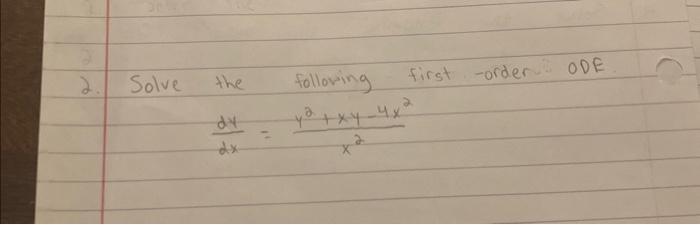 2. Solve the following first-order ODE
dy/dx = (y² + xy - 4x²)/x²